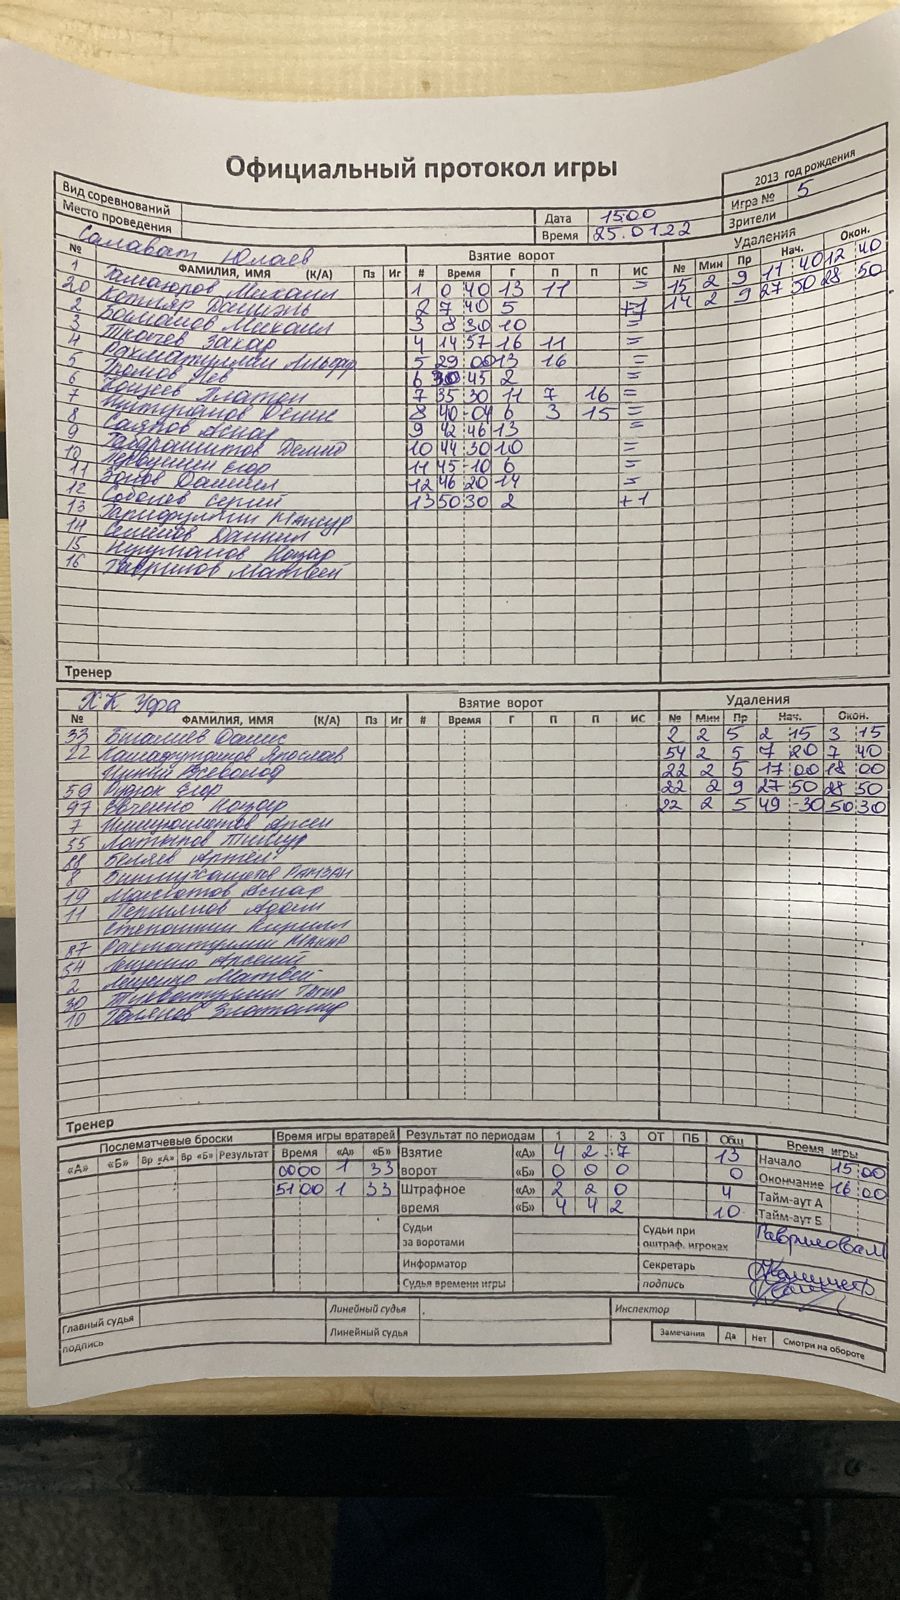 Официальный протокол игры
2013 год рождения
Вид соревнований
Игра № 5
Место проведения
Дата 15.00
Зрители
Время 25.01.22
Салават Юлаев
Взятие ворот
Удаления
№ ФАМИЛИЯ, ИМЯ (К/А) Пз Иг # Время Г П П ИС № Мин Пр Нач. Окон.
1 Михаил 1 0 40 13 11 = 15 2 9 11 40 12 40
20 Котляр Даниэль 2 7 40 5 +1 14 2 9 27 50 28 50
2 Михаил 3 8 30 10 =
3 Ткачев Захар 4 14 57 16 11 =
4 Рахматуллин Альфар 5 29 00 13 16 =
5 Громов Лев 6 30 45 2 =
6 Платон 7 35 30 11 7 16 =
7 Денис 8 40 04 6 3 15 =
8 Саяпов Аскар 9 42 46 13 =
9 Габдрашитов 10 44 30 10 =
10 Егор 11 45 10 6 =
11 Зонов Даниил 12 46 20 14 =
12 Соболев Сергей 13 50 30 2 +1
13 Мансур
14 Семенов Даниил
15 Назар
16 Гаврилов Матвей
Тренер
ХК Уфа
Взятие ворот
Удаления
№ ФАМИЛИЯ, ИМЯ (К/А) Пз Иг # Время Г П П ИС № Мин Пр Нач. Окон.
33 Данис 2 2 5 2 15 3 15
22 Ярослав 54 2 5 7 20 7 40
Всеволод 22 2 5 17 00 18 00
59 Егор 22 2 9 27 50 28 50
97 Назар 22 2 5 49 30 50 30
7 Арсен
55 Латыпов Тимур
88 Беляев Артём
8 Рамзан
19 Аскар
11 Адам
Степанкин Кирилл
87 Рахматуллин
54 Лещенко Арсений
2 Лещенко Матвей
30
10
Тренер
Послематчевые броски
Время игры вратарей
Результат по периодам 1 2 3 ОТ ПБ Общ
Время игры
«А» «Б» Вр «А» Вр «Б» Результат
Время «А» «Б»
0000 1 33
5100 1 33
Взятие ворот
«А» 4 2 7 13
«Б» 0 0 0 0
Штрафное время
«А» 2 2 0 4
«Б» 4 4 2 10
Начало 15 00
Окончание 16 00
Тайм-аут А
Тайм-аут Б
Судьи за воротами
Судьи при оштраф. игроках
Гаврилова М
Информатор
Секретарь
Судья времени игры
подпись
Главный судья
Линейный судья
Инспектор
подпись
Линейный судья
Замечания Да Нет Смотри на обороте